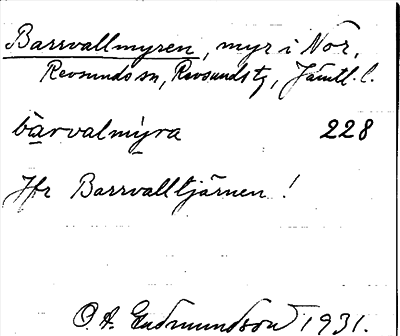 Barrvallmyren, myr i Nör,
Revsunds sn, Revsunds tg, Jämtl. l.
bärvalmýra 228
Jfr Barrvalltjärnen!
O. A. Gudmundson 1931.